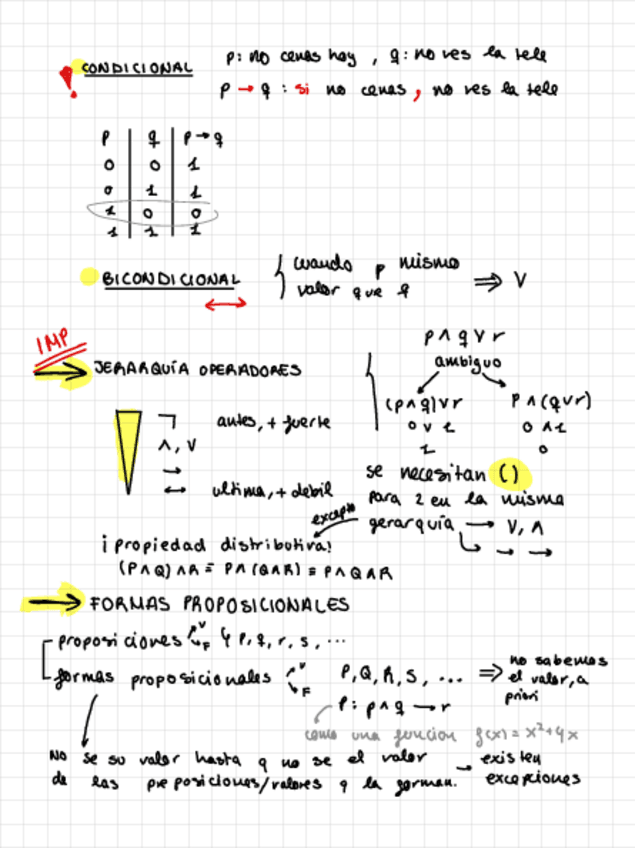 CONDICIONAL
p: no cenas hoy, q: no ves la tele
p → q : si no cenas, no ves la tele
p q p→q
0 0 1
0 1 1
1 0 0
1 1 1
BICONDICIONAL
↔
cuando p mismo
valor que q
⇒ V
IMP
JERARQUÍA OPERADORES
¬ antes, + fuerte
∧, V
→
↔ ultima, + debil
p ∧ q ∨ r
ambiguo
(p∧q)∨r p∧(q∨r)
0 ∨ 1 0 ∧ 1
1 0
se necesitan ()
para 2 en la misma
gerarquía → V, ∧
→ →
excepto
¡propiedad distributiva!
(P∧Q)∧R ≡ P∧(Q∧R) ≡ P∧Q∧R
FORMAS PROPOSICIONALES
proposiciones V F p, q, r, s, ...
formas proposicionales V F P, Q, R, S, ... ⇒ no sabemos
el valor, a
priori
P: p∧q → r
como una funcion f(x) = x²+4x
No se su valor hasta q no se el valor
de las preposiciones/valores q la forman. → existen
excepciones